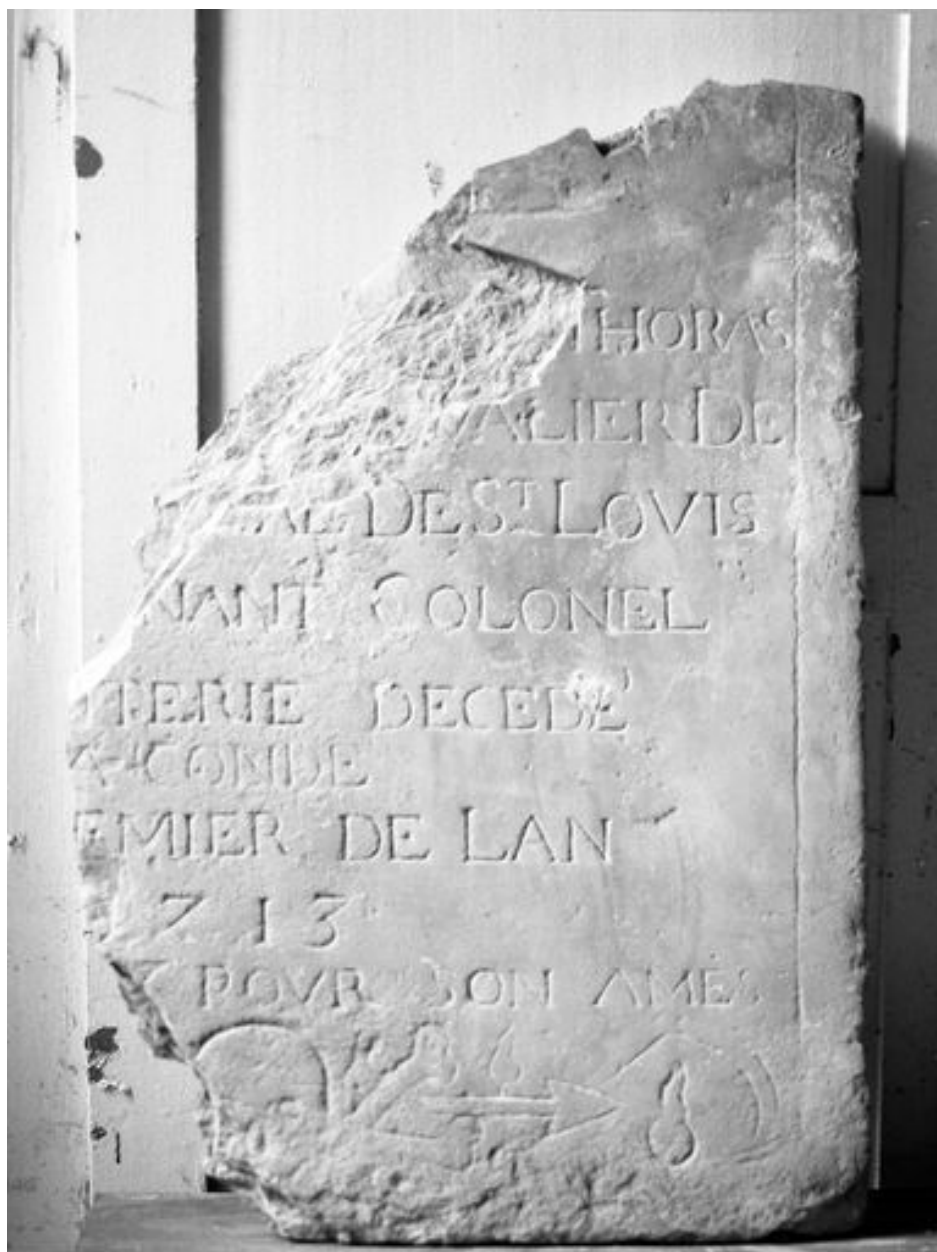 THORAS
VALIER DE
DE ST LOVIS
NANT COLONEL
TERIE DECEDE
A CONDE
EMIER DE LAN
713
POVR SON AMES